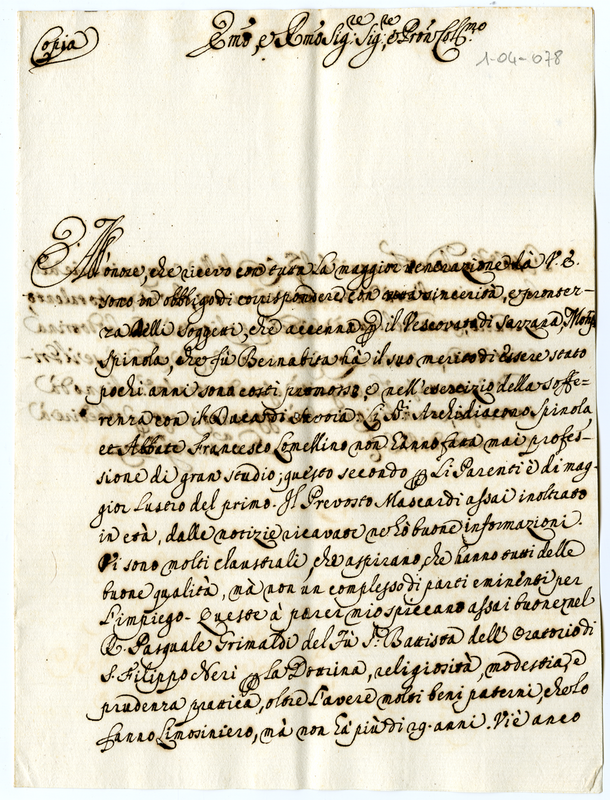 Copia
Emo, e Rmo Sig:re Sig:re, e Pron Col:mo
1-04-078
All'onore, che ricevo con tutta la maggior venerazione da V. E.
sono in obbligo di corrispondere con ogni sincerità, e prontez-
za delli soggetti, che accenna p il Vescovato di Sarzana, Monsr
Spinola, che fù Bernabita hà il suo merito di Essere stato
pochi anni sono costì promosso, e nell'esercizio della soffe-
renza con il Duca di Savoia; Li Sri Archidiacono Spinola
et Abbate Francesco Lomellino non hanno fatta mai profes-
sione di gran studio; questo secondo p Li Parenti è di mag-
gior Lustro del primo. Il Prevosto Mascardi assai inoltrato
in età, dalle notizie ricavate ne hò buone informazioni.
Vi sono molti claustrali, che aspirano, che hanno tutti delle
buone qualità, mà non un complesso di parti eminenti per
L'impiego. Queste à parer mio spiccano assai buone nel
P. Pasquale Grimaldi del Fù Sr. Battista dell'Oratorio di
S. Filippo Neri p La Dottrina, religiosità, modestia, e
prudenza prattica, oltre L'avere molti beni paterni, che lo
fanno Limosiniero, mà non hà più di 29. anni. Vi è anco